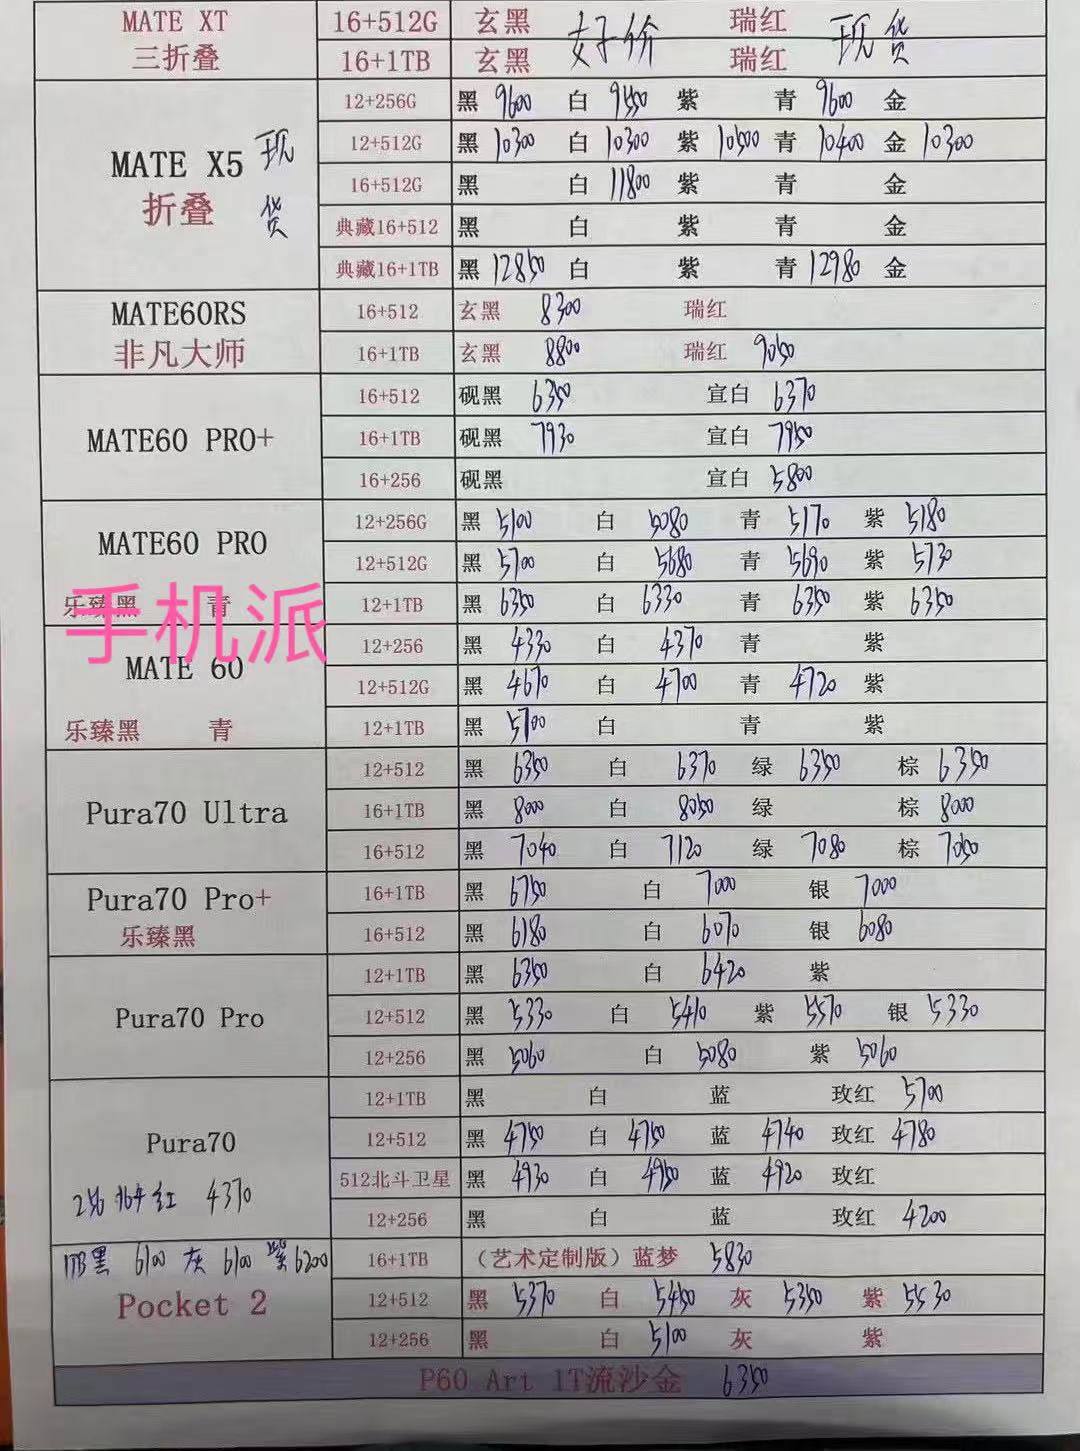 MATE XT 三折叠 16+512G 玄黑 好价 瑞红 现货
16+1TB 玄黑 瑞红
MATE X5 折叠 现货
12+256G 黑 9600 白 9550 紫 青 9600 金
12+512G 黑 10300 白 10300 紫 10500 青 10400 金 10300
16+512G 黑 白 11800 紫 青 金
典藏16+512 黑 白 紫 青 金
典藏16+1TB 黑 12850 白 紫 青 12980 金
MATE60RS 非凡大师
16+512 玄黑 8300 瑞红
16+1TB 玄黑 8800 瑞红 9050
MATE60 PRO+
16+512 砚黑 6350 宣白 6370
16+1TB 砚黑 7930 宣白 7950
16+256 砚黑 宣白 5800
MATE60 PRO
乐臻黑 青
12+256G 黑 5100 白 5080 青 5170 紫 5180
12+512G 黑 5700 白 5680 青 5690 紫 5730
12+1TB 黑 6350 白 6330 青 6350 紫 6350
手机派
MATE 60
乐臻黑 青
12+256 黑 4330 白 4370 青 紫
12+512G 黑 4670 白 4700 青 4720 紫
12+1TB 黑 5700 白 青 紫
Pura70 Ultra
12+512 黑 6350 白 6370 绿 6350 棕 6350
16+1TB 黑 8000 白 8050 绿 棕 8000
16+512 黑 7040 白 7120 绿 7080 棕 7050
Pura70 Pro+
乐臻黑
16+1TB 黑 6750 白 7000 银 7000
16+512 黑 6180 白 6070 银 6080
Pura70 Pro
12+1TB 黑 6350 白 6420 紫
12+512 黑 5330 白 5410 紫 5570 银 5330
12+256 黑 5060 白 5080 紫 5060
Pura70
256 红 4370
12+1TB 黑 白 蓝 玫红 5700
12+512 黑 4750 白 4750 蓝 4740 玫红 4780
512北斗卫星 黑 4930 白 4950 蓝 4920 玫红
12+256 黑 白 蓝 玫红 4200
1TB黑 6100 灰 6100 紫6200
Pocket 2
16+1TB （艺术定制版）蓝梦 5830
12+512 黑 5370 白 5450 灰 5350 紫 5530
12+256 黑 白 5100 灰 紫
P60 Art 1T流沙金 6350